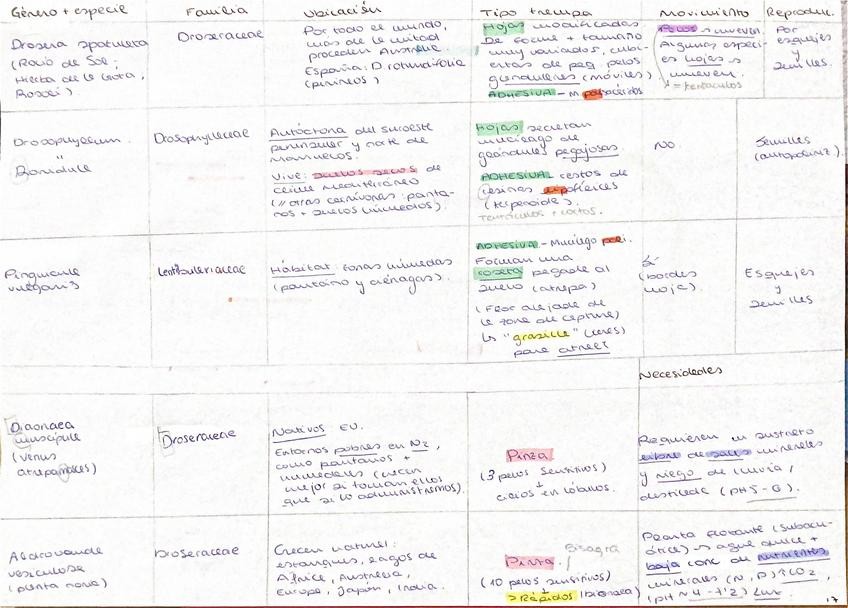 Género + especie
Familia
Ubicación
Tipo trampa
Movimiento
Reproduc.
Drosera spatulata
(Rocío de Sol;
Hierba de la Gota,
Rosoli)
Droseraceae
Por todo el mundo,
mas de la mitad
proceden Australia
España: D. rotundifolia
(pirineos)
Hojas modificadas
De forma + tamaño
muy variados, cubi-
ertas de peq pelos
glandulares (móviles)
ADHESIVA - M
Pelos s mueven.
Algunas especi-
es hojas s
mueven.
= tentáculos
Por
esquejes
y
semillas.
Drosophyllum
"
Drosophyllaceae
Autóctona del suroeste
peninsular y norte de
marruecos.
Vive: suelos secos de
clima mediterráneo
(// otras carnívoras: panta-
nos + suelos húmedos).
Hojas secretan
mucílago de
glándulas pegajosas.
ADHESIVA restos de
resinas
(terpenoide).
Tentáculos + cortos.
No.
Semillas
(autopoliniz.)
Pinguicula
vulgaris
Lentibulariaceae
Hábitat: zonas húmedas
(pantano y ciénagas).
ADHESIVA - Mucílago poli.
Forman una
roseta pegada al
suelo (atrapa)
(Flor alejada de
la zona de captura)
↳ "grasilla" (ceras)
para atraer
Sí
(bordes
hoja).
Esquejes
y
semillas
Necesidades
Dionaea
muscipula
(venus
atrapamoscas)
Droseraceae
Nativos EU.
Entornos pobres en N2,
como pantanos +
humedales (crecen
mejor si toman ellos
que si lo administramos).
Pinza
(3 pelos sensitivos)
↓
cilios en lóbulos.
Requieren un sustrato
libre de sales minerales
y riego de lluvia,
destilada (pH 5-6).
Aldrovanda
vesiculosa
(planta noria)
Droseraceae
Crecen natural:
estanques, lagos de
África, Australia,
Europe, Japón, India.
Pinza. Bisagra
(40 pelos sensitivos)
↓
> Rápidos (dionaea)
Planta flotante (subacu-
ática) → agua dulce +
baja conc de nutrientes
minerales (N, P) ↑CO2,
(pH ~ 4-7'2) Luz
17